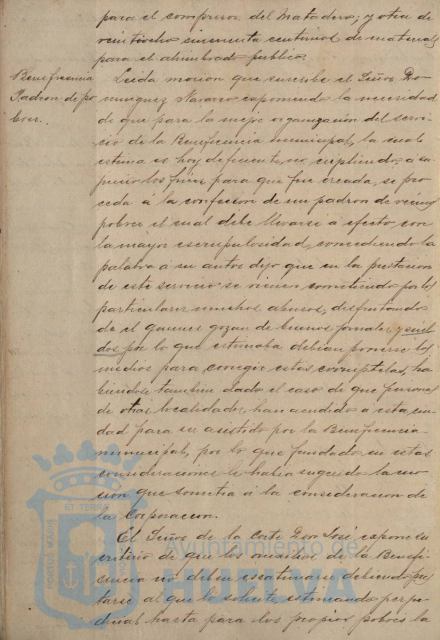 para el compresor del Matadero; y otra de
veintiocho cincuenta centimos de material
para el alumbrado publico.
Beneficencia
Padron de po
bres.
Leida mocion que suscribe el Señor Do
minguez Navarro exponiendo la necesidad
de que para la mejor organizacion del servi
cio de la Beneficencia municipal, la cual
estima es hoy deficiente, no cumpliendo, a su
juicio los fines para que fue creada, se pro
ceda á la confeccion de un padron de vecinos
pobres el cual debe llevarse á efecto con
la mayor escrupulosidad, concediendo la
palabra á su autor dijo que en la prestacion
de este servicio se vienen cometiendo por los
particulares muchos abusos, disfrutando
de él quienes gozan de buenos jornales y suel
dos por lo que estimaba debian ponerse los
medios para corregir estas corruptelas, ha
biendose tambien dado el caso de que personas
de otras localidades han acudido a esta ciu
dad para ser asistido por la Beneficencia
municipal, por lo que fundado en estas
consideraciones le habia sugerido la mo
cion que sometia á la consideracion de
la Corporacion.
El Señor de la Corte Don José expone su
criterio de que los auxilios de la Benefi
cencia no deben escatimarse debiendo pres
tarse al que lo solicite, estimando perju
dicial hasta para los propios pobres la
Ayuntamiento de
HUELVA
PORTUS MARIS
ET TERRÆ